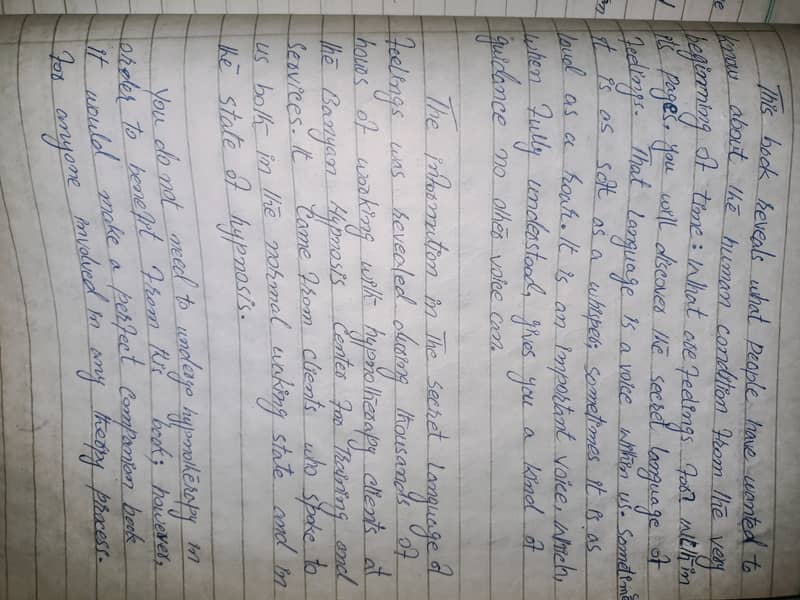 This book reveals what people have wanted to
know about the human condition from the very
beginning of time: What are feelings for? Within
its pages, you will discover the secret language of
feelings. That language is a voice within us. Sometime
it is as soft as a whisper: sometimes it is as
loud as a hour. It is an important voice, which,
when fully understood, gives you a kind of
guidance no other voice can.
The information in The secret language of
Feelings was revealed during thousands of
hours of working with hypnotherapy clients at
the Banyan Hypnosis Center for Training and
services. It came from clients who spoke to
us both in the normal waking state and in
the state of hypnosis.
You do not need to undergo hypnotherapy in
order to benefit from this book; however,
it would make a perfect companion book
for anyone involved in any therpy process.